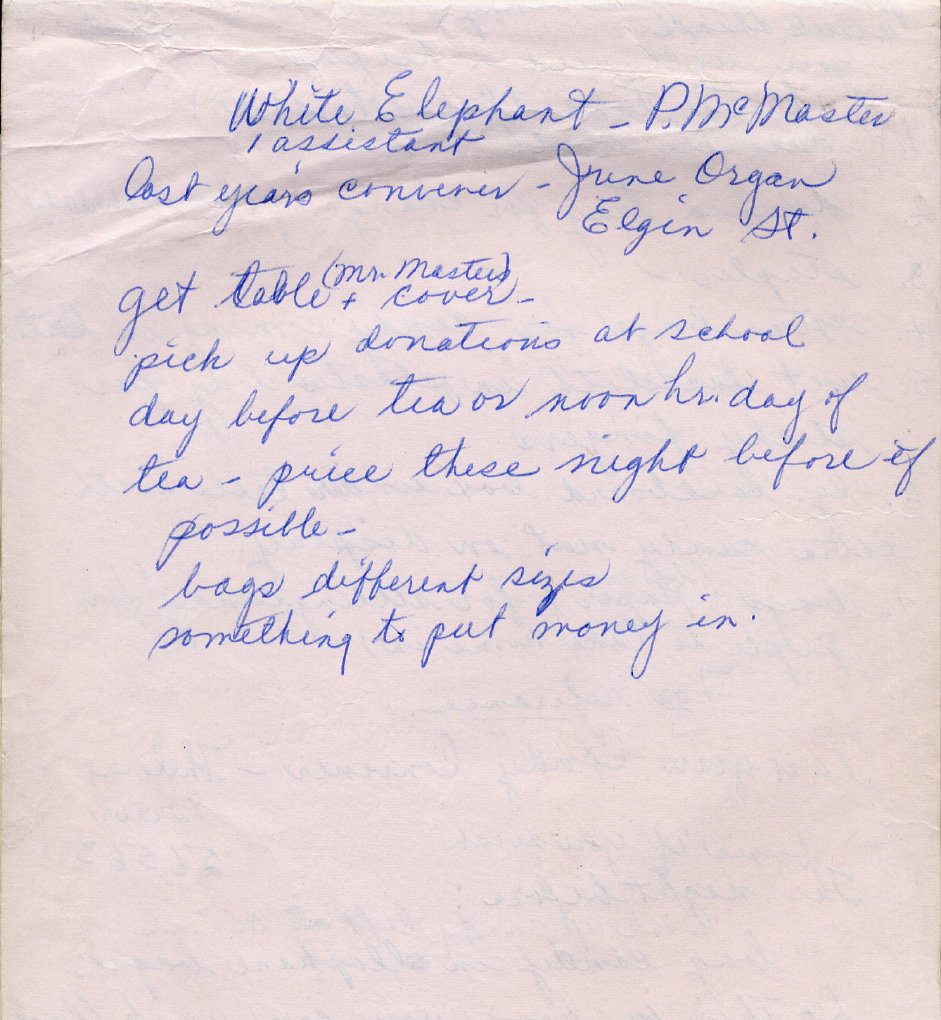 White Elephant - P. McMaster
1 assistant
last year's convener - June Organ
Elgin St.
(Mr. Masters)
get table + cover -
pick up donations at school
day before tea or noon hr. day of
tea - price these night before if
possible -
bags different sizes
something to put money in.